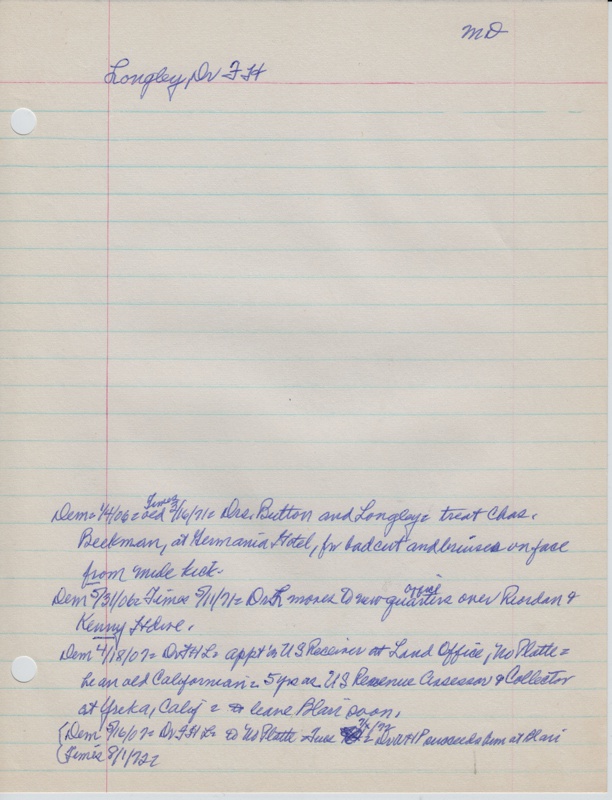 MD
Longley, Dr F H
Dem = 1/4/06 = Times 2/16/71 = Drs. Button and Longley = treat Chas.
Beekman, at Germania Hotel, for bad cut and bruises on face
from mule kick.
Dem 5/31/06 = Times 5/11/71 = Dr L moves to new quarters over Riordan &
Kenny Hdwe.
Dem 4/18/07 = Dr F H L = appt'd US Receiver at Land Office, No Platte =
he an old Californian = 5 yrs as US Revenue Assessor & Collector
at Yreka, Calif = leave Blair soon.
Dem 5/16/07 = Dr F H L = to No Platte = = Dr succeeds him at Blair
Times 8/1/72